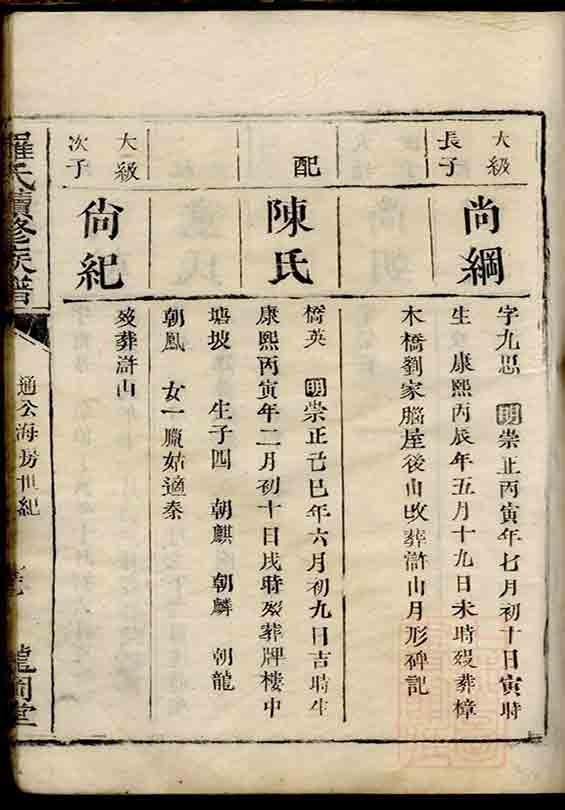 大級
長子
尚綱
字九思 明崇正丙寅年七月初十日寅時
生 康熙丙辰年五月十九日未時殁葬樟
木橋劉家腦屋後山改葬滸山月形碑記
配
陳氏
橋英 明崇正己巳年六月初九日吉時生
康熙丙寅年二月初十日戌時殁葬牌樓中
塘坡 生子四 朝麒 朝麟 朝龍
朝鳳 女一臘姑適秦
大級
次子
尙紀
殁葬滸山
羅氏續修族譜
通公海房世紀